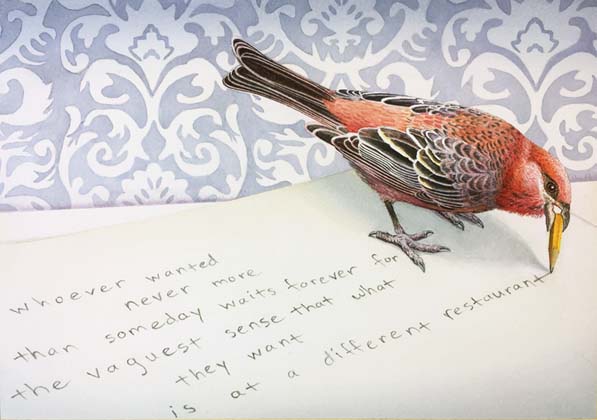 whoever wanted
never more
than someday waits forever for
the vaguest sense that what
they want
is at a different restaurant